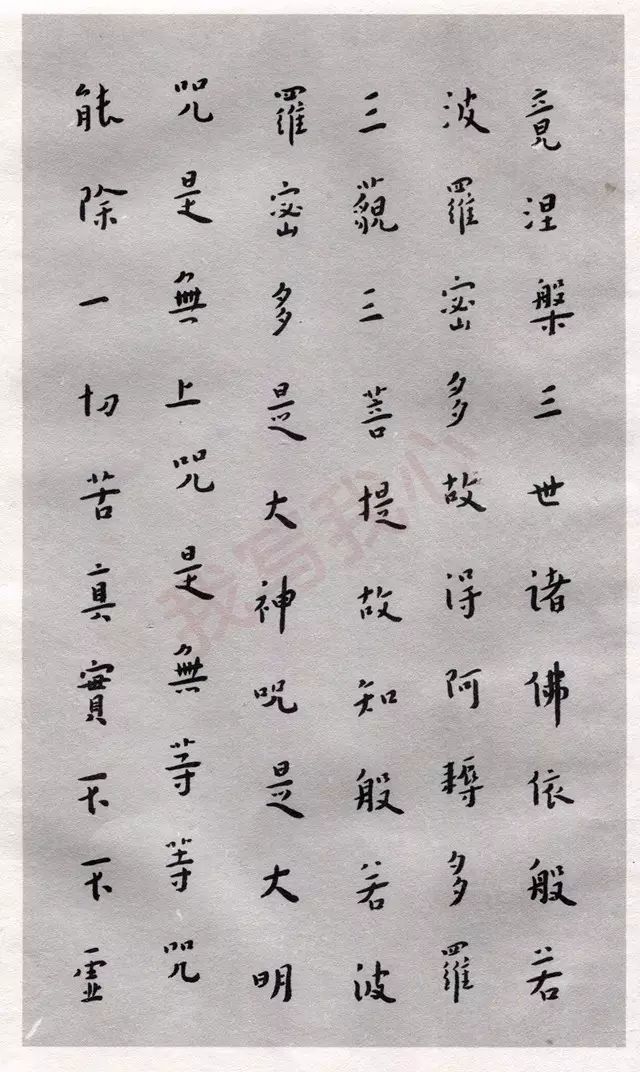 竟涅槃三世諸佛依般若
波羅密多故得阿耨多羅
三藐三菩提故知般若波
羅密多是大神咒是大明
咒是無上咒是無等等咒
能除一切苦真實不不虛
我写我心